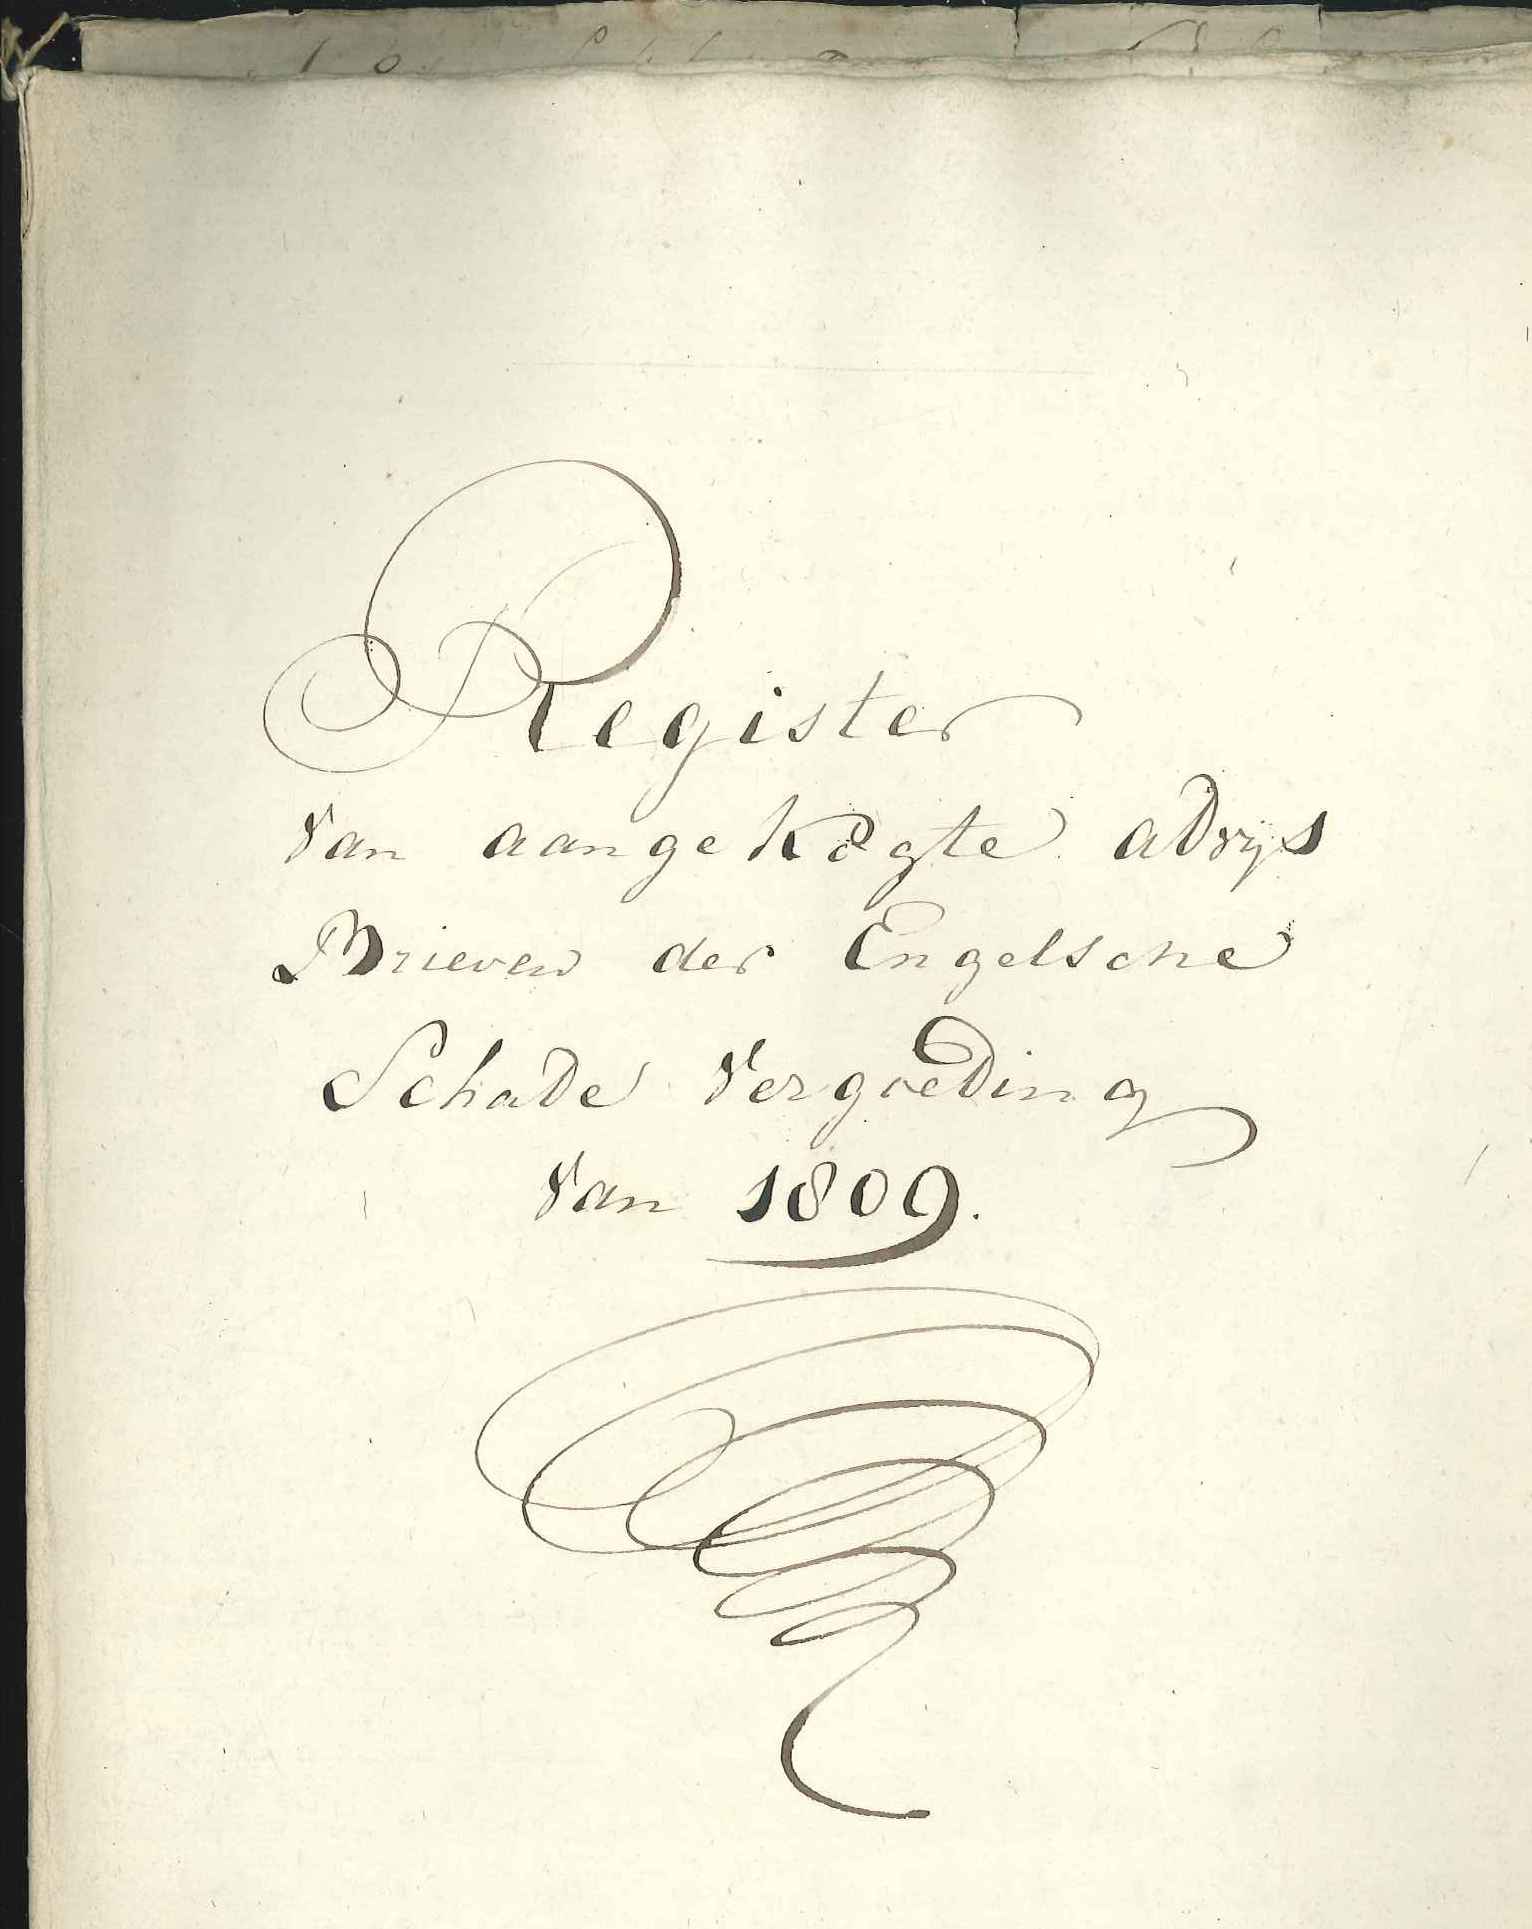 Register
Van aangekogte advys
Brieven der Engelsche
Schade Vergoeding
Van 1809.